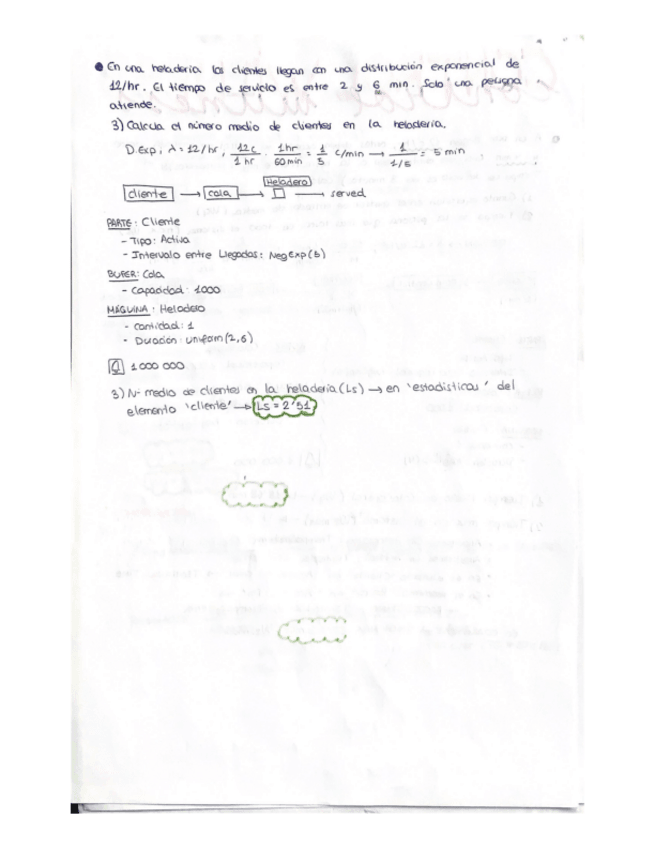 ● En una heladería los clientes llegan con una distribución exponencial de
12/hr. El tiempo de servicio es entre 2 y 6 min. Solo una persona
atiende.
3) Calcula el número medio de clientes en la heladería.
D.Exp, λ = 12/hr, 12c/1hr · 1hr/60min = 1/5 c/min → 1/1/5 = 5 min
Heladero
cliente → cola → □ → served
PARTE: Cliente
- Tipo: Activa
- Intervalo entre Llegadas: NegExp(5)
BUFER: Cola
- Capacidad: 1000
MÁQUINA: Heladero
- Cantidad: 1
- Duración: Uniform(2,6)
1000 000
3) Nº medio de clientes en la heladería (Ls) → en 'estadísticas' del
elemento 'cliente' → Ls = 2'51